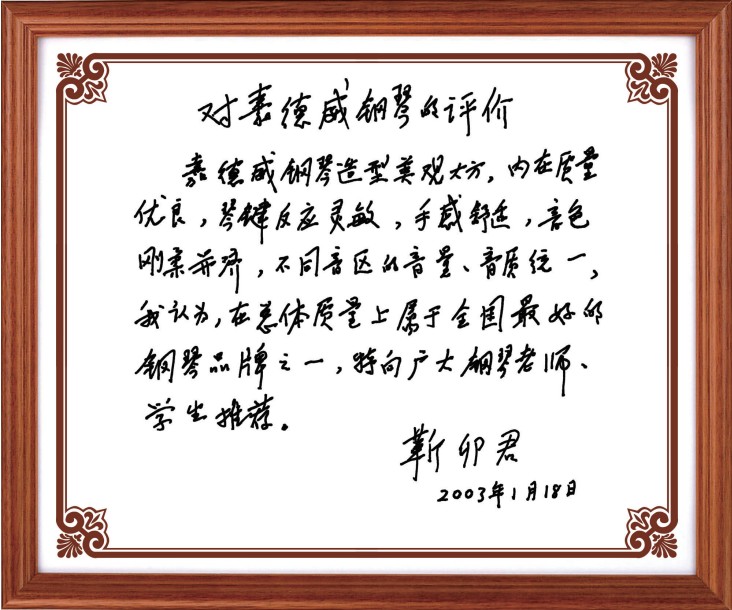 对嘉德威钢琴的评价
嘉德威钢琴造型美观大方，内在质量
优良，琴键反应灵敏，手感舒适，音色
刚柔并济，不同音区的音量、音质统一，
我认为，在总体质量上属于全国最好的
钢琴品牌之一，特向广大钢琴老师、
学生推荐。
靳卯君
2003年1月18日